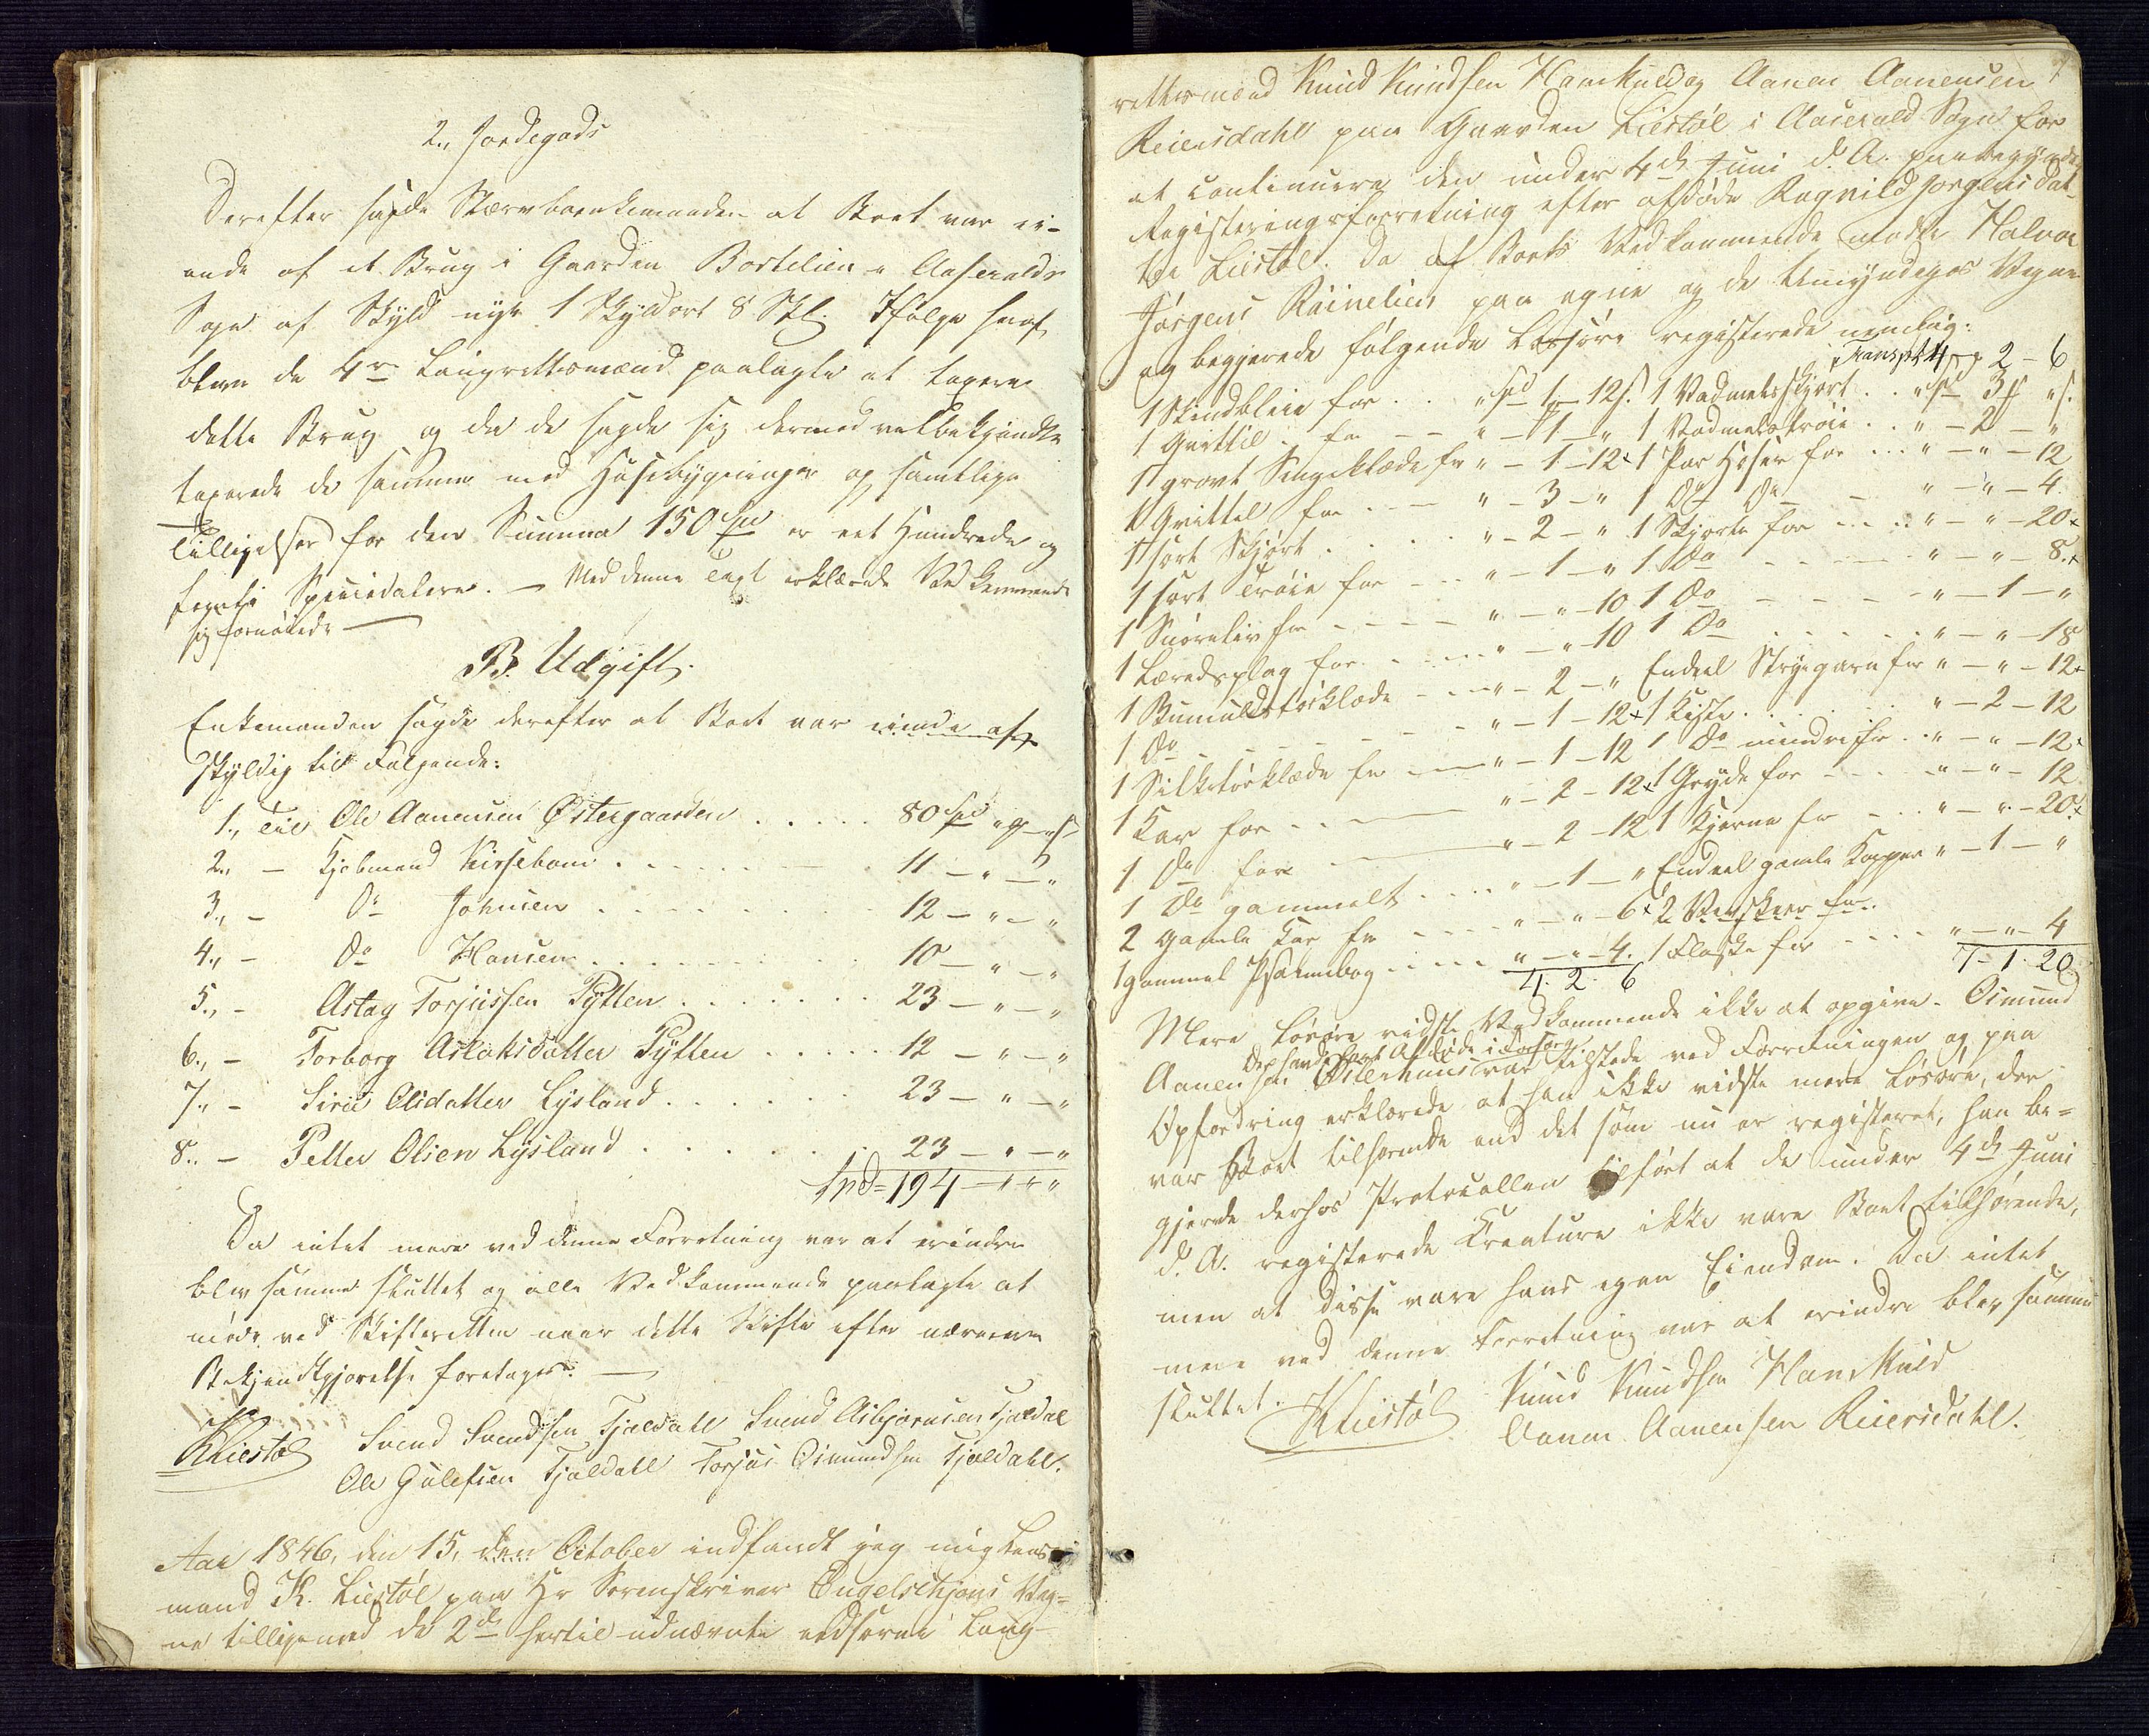 2., Jordegods
Derefter sagde Stervboenkemanden at Boet var ei-
ende af et Brug i Gaarden Bortelien i Aaseralds
Sogn af Skyld nye 1 Skyldort 8 Skl. Ifølge heraf
blev de 4re Laugrettesmænd paalagte at taxere
dette Brug og da de sagde sig dermed velbekjendte
taxerede de samme med Huusebygninger og samtlige
Tilligelser for den Summa 150 Spd er eet Hundrede og
femti Speciedalere. — Med denne Taxt erklærede Vedkommende
sig fornøiede —
B. Udgift.
Enkemanden sagde derefter at Boet var eiende af
skyldig til Følgende:
1., Til Ole Aanensen Østergaarden . . . . . 80 Spd " ß
2., — Kjøbmand Kirsebom . . . . . 11 — " — "
3., — Do Johnsen . . . . . 12 — " — "
4., — Do Hansen . . . . . 10 — " — "
5., — Aslag Torjussen Pytten . . . . . 23 — " — "
6., — Torborg Aslaksdatter Pytten . . . . . 12 — " — "
7., — Siri Olsdatter Lysland . . . . . 23 — " — "
8., — Petter Olsen Lysland . . . . . 23 — " — "
Spd = 194 — " — "
Da intet mere ved denne Forretning var at erindre
blev samme sluttet og alle Vedkommende paalagte at
møde ved Skifteretten naar dette Skifte efter nærmere
Bekjendtgjørelse foretages. —
KLiestøl Svend Svendsen Fjeldahl Svend Asbjørnsen Fjeldal
Ole Gulefsen Fjeldahl Torjus Osmundsen Fjeldahl.
Aar 1846, den 15, den October indfandt jeg mig Lens-
mand K. Liestøl paa Hr Sorenskriver Engelschjøns Veg=
ne tilligemed de 2de hertil udnævnte eedsorne Laug-
rettesmænd Knud Knudsen Hamkuld og Aanen Aanensen
Reiersdahl paa Gaarden Liestøl i Aaserald Sogn for
at continuere den under 4de Juni d. A. paabegyndte
Registeringsforretning efter afdøde Ragnild Jørgensdat-
ter Liestøl. Da af Boets Vedkommende mødte Halvor
Jørgens paa egne og de Umyndiges Vegne
og begjerede følgende Løsøre registerede nemlig:
Transpt 4 — 2 — 6
1 Skindbleie for . . " Spd 1 — 12 s. 1 Vadmelsskjørt . . " Spd 3 " s.
1 Qvittil for — — " — 1 — " 1 Vadmelstrøie . . " — 2 — "
1 grovt Sengeklæde for " — 1 — 12 1 Par Hoser for . . . " — " — 12
1 Qvittel for . — — " — 3 — " 1 Do Do — " — " — 4
1 sort Skjørt . . . . " — 2 — " 1 Skjorte for . . . " — " — 20
1 sort Trøie for — . . " — 1 — " 1 Do — — — " — " — 8
1 Snøreliv for — — — " — " — 10 1 Do — — — " — 1 — "
1 Læredsplag for . . . " — " — 10 1 Do . . . . " — " — 18
1 Bumuldstørklæde — — " — 2 — " Endeel Strygarn for " — " — 12
1 Do — — — " — 1 — 12 1 Kiste . . . . " — 2 — 12
1 Silketørklæde for — — " — 1 — 12 1 Do mindre for . . " — " — 12
1 Kar for . . — " — 2 — 12 1 Gryde for — — " — " — 12
1 Do for — " — 2 — 12 1 Kjerne for — . . " — " — 20
1 Do gammelt . . . . " — 1 — " Endeel gamle Kopper " — 1 — "
2 gamle Kar for — — — " — " — 6 2 for
1 gammel Psalmebog . . . . " — " — 4. 1 Flaske for — — — " — " — 4
4. 2. 6 7 — 1. 20
Mere Løsøre vidste Vedkommende ikke at opgive. Osmund
Aanensen var tilstede ved Forretningen og paa
Opfordring erklærede at han ikke vidste mere Løsøre, der
var Boet tilhørende end det som nu er registeret, han be=
gjerede derhos Protocollen tilført at de under 4de Juni
d. A. registerede Kreature ikke vare Boet tilhørende,
men at disse vare hans egen Eiendom. Da intet
mere ved denne Forretning var at erindre blev samme
sluttet.
KLiestøl Knud Knudsen Hamkuld
Aanen Aanensen Reiersdahl.